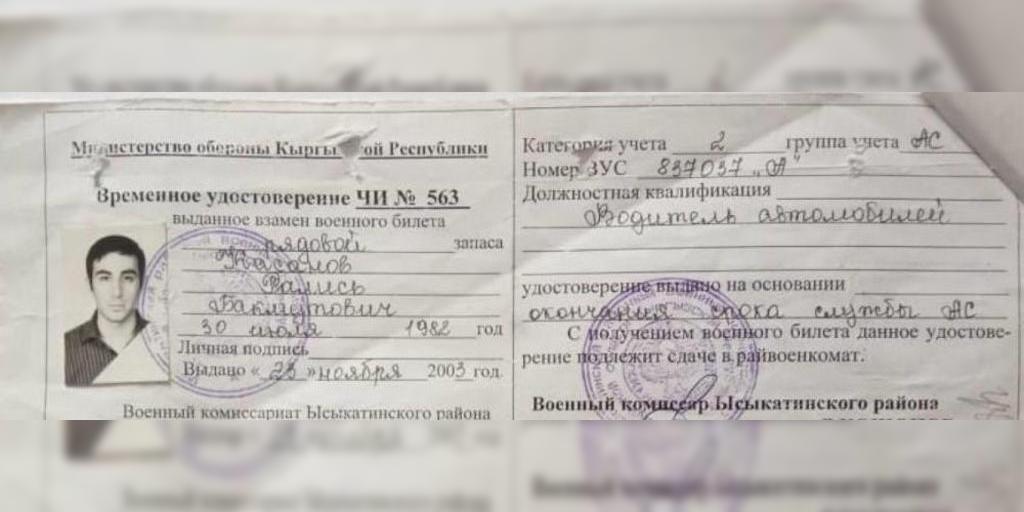 Министерство обороны Кыргызской Республики
Временное удостоверение ЧИ № 563
выданное взамен военного билета
рядовой запаса
Касанов
Рамись
30 июля 1982 год
Личная подпись
Выдано « 23 » ноября 2003 год
Военный комиссариат Ысыкатинского района
Категория учета 2 группа учета АС
Номер ЗУС 837037 „А"
Должностная квалификация
Водитель автомобилей
удостоверение выдано на основании
окончания срока службы АС
С получением военного билета данное удостове-
рение подлежит сдаче в райвоенкомат.
Военный комиссар Ысыкатинского района